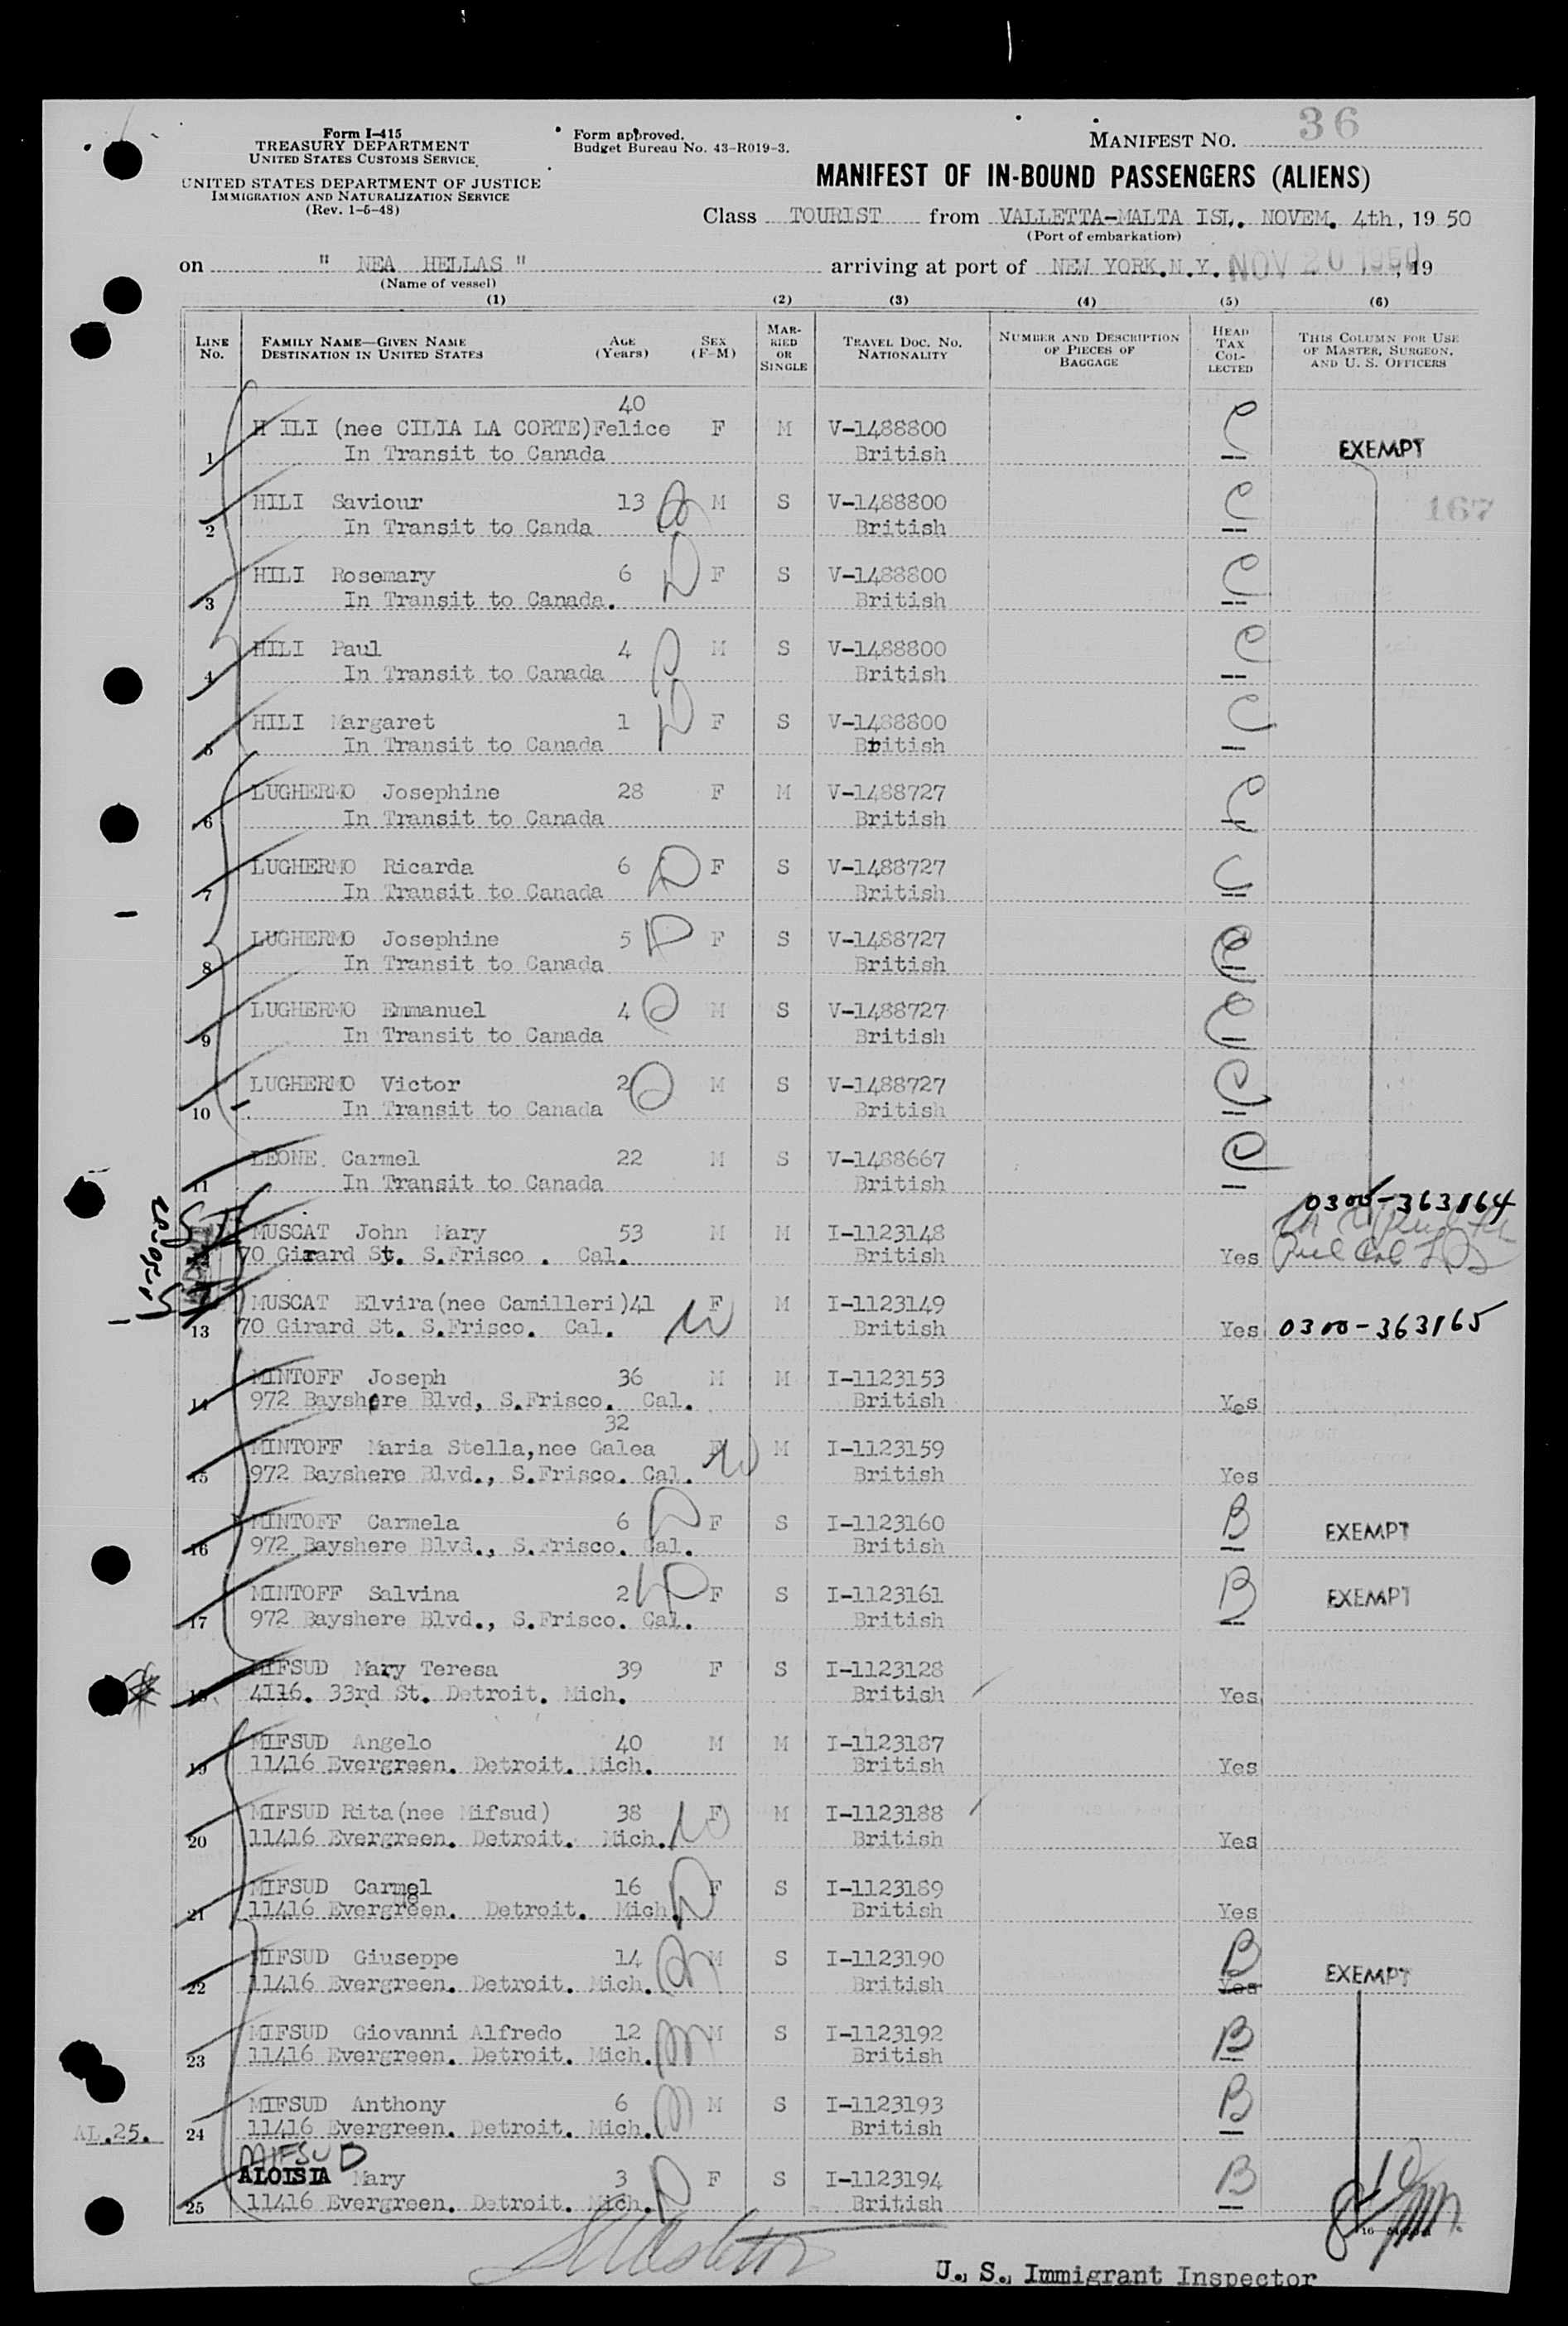 Form I-415
TREASURY DEPARTMENT
UNITED STATES CUSTOMS SERVICE
UNITED STATES DEPARTMENT OF JUSTICE
IMMIGRATION AND NATURALIZATION SERVICE
(Rev. 1-5-48)
Form approved.
Budget Bureau No. 43-R019-3.
MANIFEST NO. 36
MANIFEST OF IN-BOUND PASSENGERS (ALIENS)
Class TOURIST from VALLETTA-MALTA ISL. NOVEM. 4th, 19 50
(Port of embarkation)
on " NEA HELLAS " arriving at port of NEW YORK.N.Y. NOV 20 1950, 19
(Name of vessel)
(1) (2) (3) (4) (5) (6)
LINE No. FAMILY NAME—GIVEN NAME DESTINATION IN UNITED STATES AGE (Years) SEX (F-M) MARRIED OR SINGLE TRAVEL DOC. NO. NATIONALITY NUMBER AND DESCRIPTION OF PIECES OF BAGGAGE HEAD TAX COLLECTED THIS COLUMN FOR USE OF MASTER, SURGEON, AND U. S. OFFICERS
40
H ILI (nee CILIA LA CORTE)Felice F M V-1488800 C
1 In Transit to Canada British EXEMPT
HILI Saviour 13 M S V-1488800 C 167
2 In Transit to Canda British
HILI Rosemary 6 F S V-1488800 C
3 In Transit to Canada. British
HILI Paul 4 M S V-1488800 C
4 In Transit to Canada British
HILI Margaret 1 F S V-1488800 C
5 In Transit to Canada British
LUGHERMO Josephine 28 F M V-1488727 C
6 In Transit to Canada British
LUGHERMO Ricarda 6 F S V-1488727 C
7 In Transit to Canada British
LUGHERMO Josephine 5 F S V-1488727 C
8 In Transit to Canada British
LUGHERMO Emmanuel 4 M S V-1488727 C
9 In Transit to Canada British
LUGHERMO Victor 2 M S V-1488727 C
10 In Transit to Canada British
LEONE. Carmel 22 M S V-1488667 C
11 In Transit to Canada British
0300-363164
MUSCAT John Mary 53 M M I-1123148
12 70 Girard St. S.Frisco . Cal. British Yes
MUSCAT Elvira(nee Camilleri)41 F M I-1123149
13 70 Girard St. S.Frisco. Cal. British Yes 0300-363165
MINTOFF Joseph 36 M M I-1123153
14 972 Bayshore Blvd, S.Frisco. Cal. British Yes
32
MINTOFF Maria Stella,nee Galea F M I-1123159
15 972 Bayshere Blvd., S.Frisco. Cal. British Yes
MINTOFF Carmela 6 F S I-1123160 B
16 972 Bayshere Blvd., S.Frisco. Cal. British EXEMPT
MINTOFF Salvina 2 F S I-1123161 B EXEMPT
17 972 Bayshere Blvd., S.Frisco. Cal. British
MIFSUD Mary Teresa 39 F S I-1123128
18 4116. 33rd St. Detroit. Mich. British Yes
MIFSUD Angelo 40 M M I-1123187
19 11416 Evergreen. Detroit. Mich. British Yes
MIFSUD Rita(nee Mifsud) 38 F M I-1123188
20 11416 Evergreen. Detroit. Mich. British Yes
MIFSUD Carmel 16 F S I-1123189
21 11416 Evergreen. Detroit. Mich. British Yes
MIFSUD Giuseppe 14 M S I-1123190 B
22 11416 Evergreen. Detroit. Mich. British Yes EXEMPT
MIFSUD Giovanni Alfredo 12 M S I-1123192 B
23 11416 Evergreen. Detroit. Mich. British
MIFSUD Anthony 6 M S I-1123193 B
AL.25. 24 11416 Evergreen. Detroit. Mich. British
MIFSUD
ALOISIA Mary 3 F S I-1123194 B
25 11416 Evergreen. Detroit. Mich. British
U. S. Immigrant Inspector